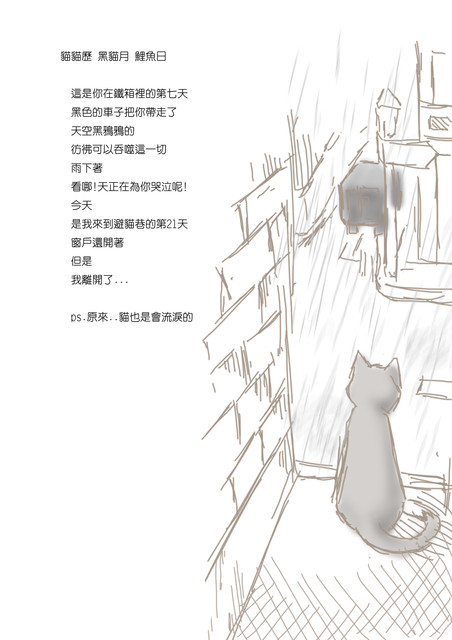 貓貓歷 黑貓月 鯉魚日
這是你在鐵箱裡的第七天
黑色的車子把你帶走了
天空黑鴉鴉的
彷彿可以吞噬這一切
雨下著
看哪!天正在為你哭泣呢!
今天
是我來到避貓巷的第21天
窗戶還開著
但是
我離開了...
ps.原來..貓也是會流淚的